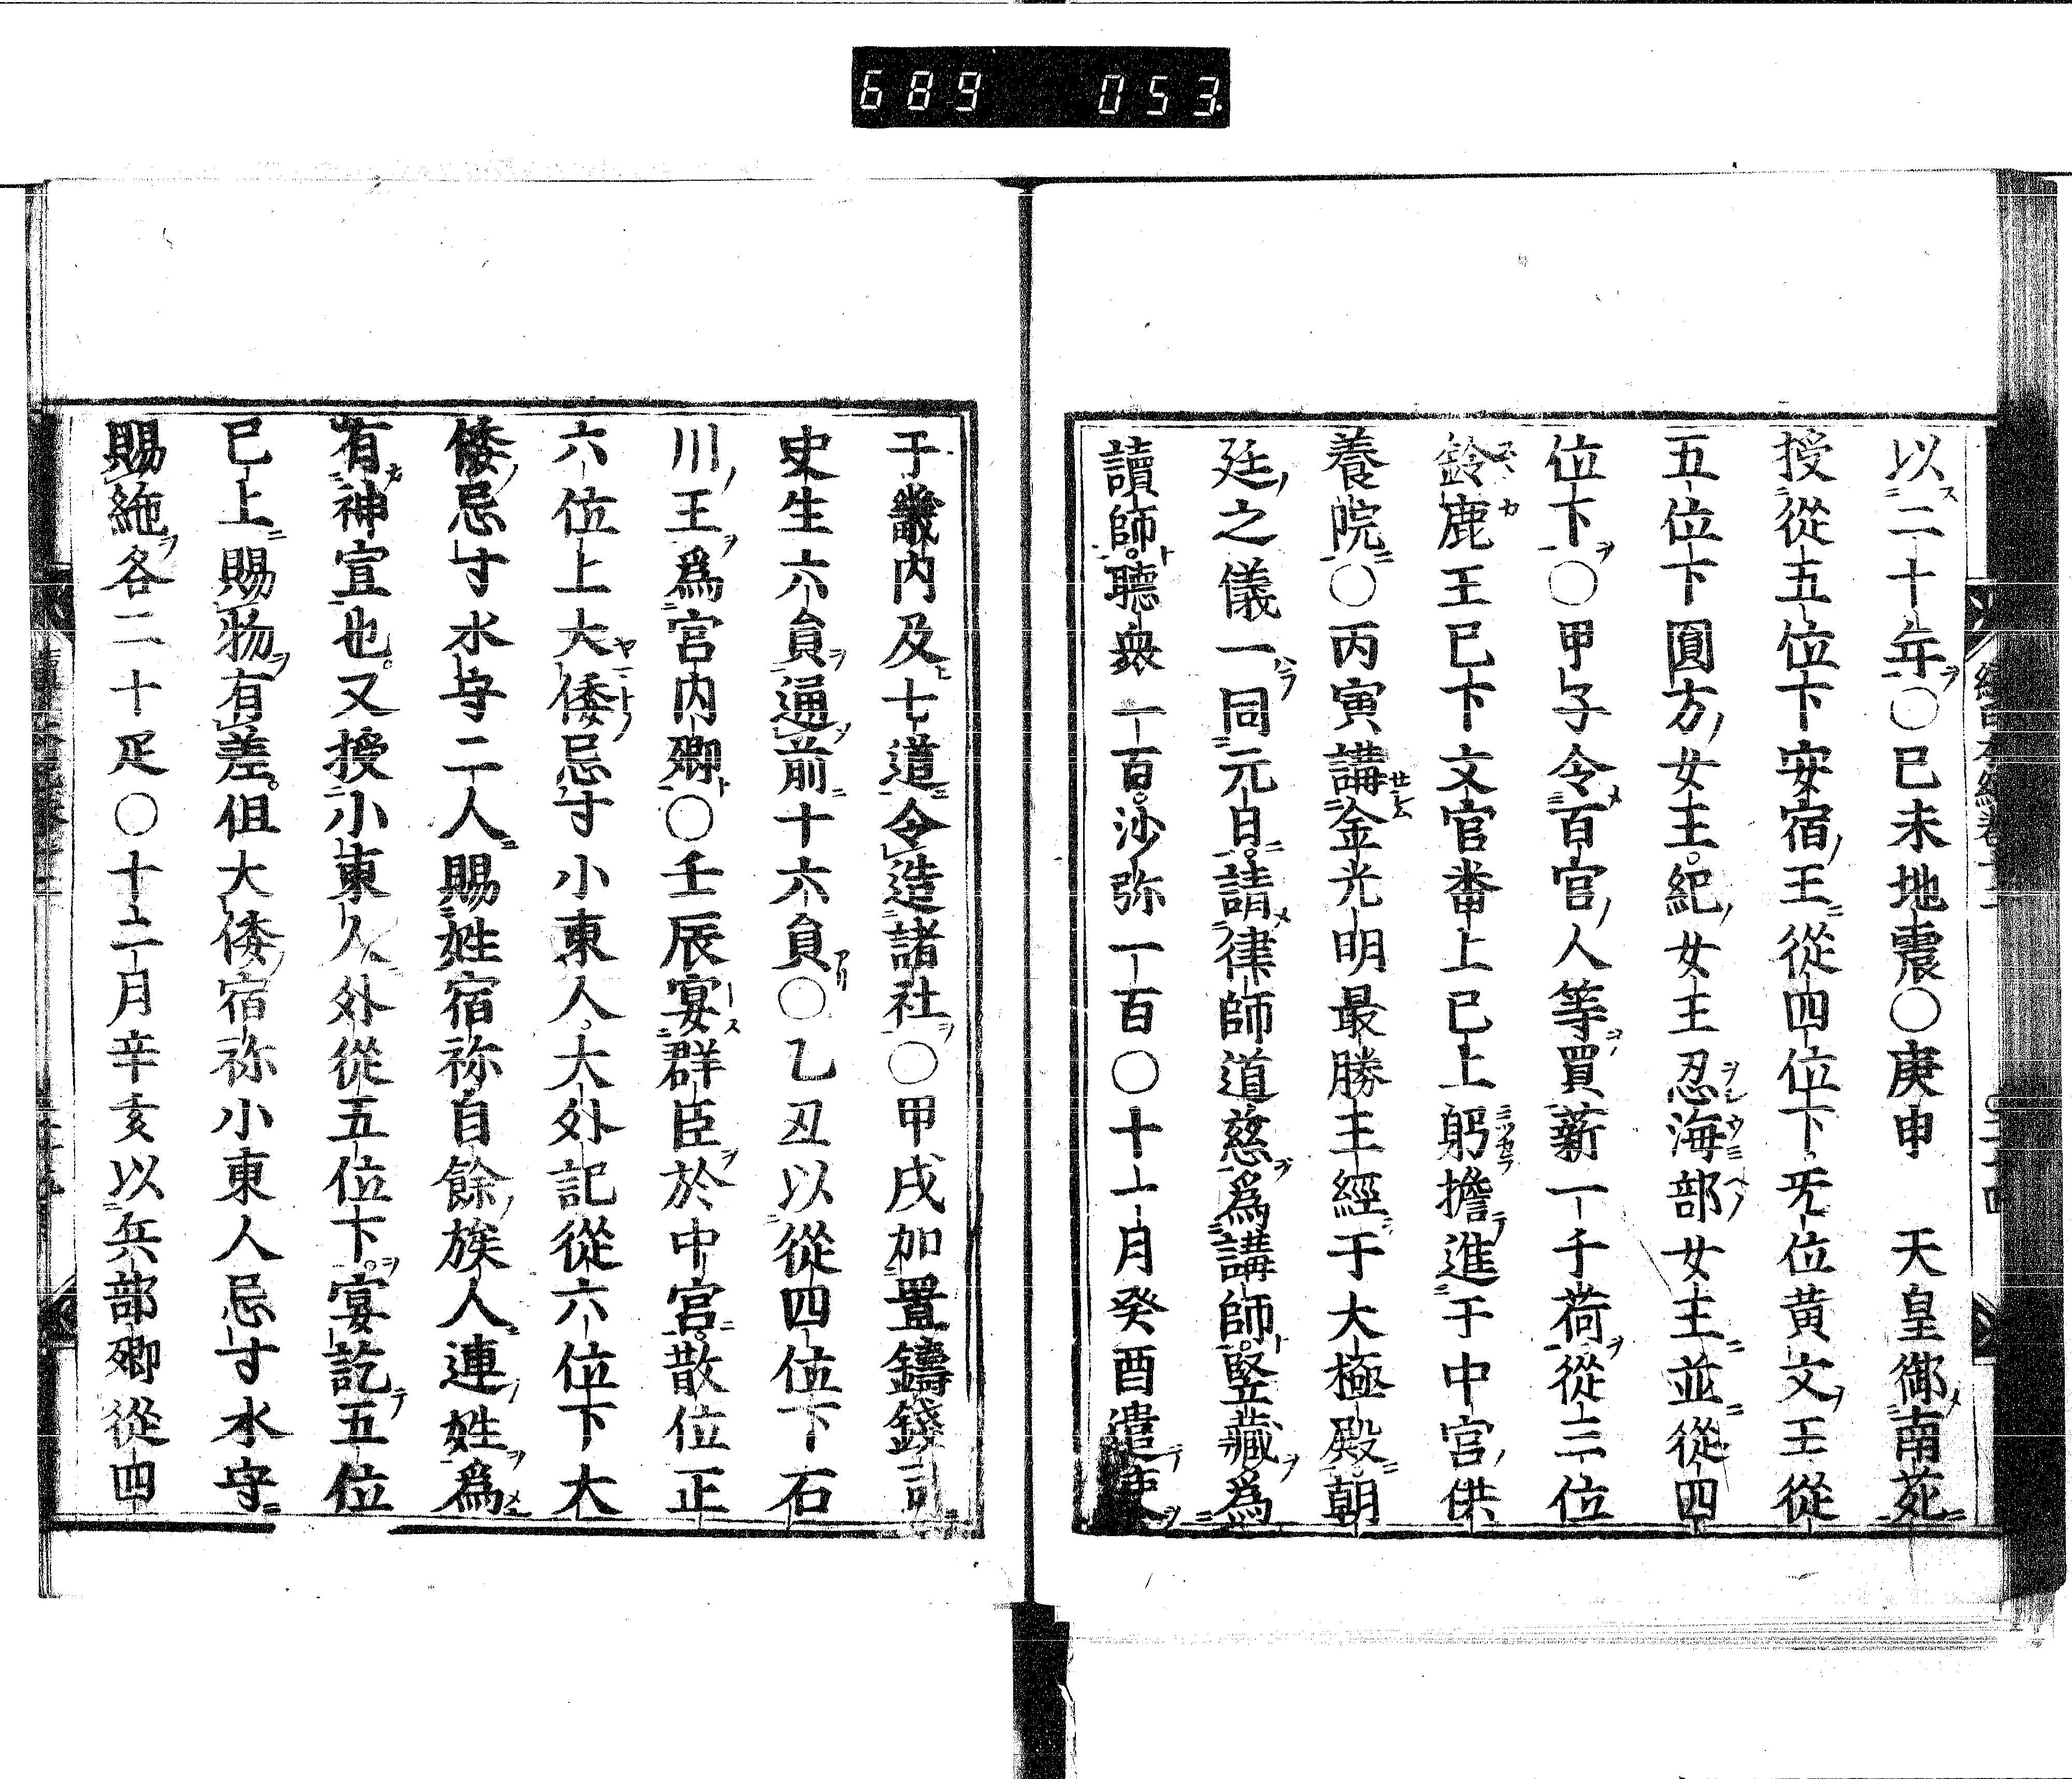 689 053
以二十年○已未地震○庚申　天皇御南苑
授從五位下安宿王從四位下无位黄文王從
五位下圓方女王紀女王忍海部女王並從四
位下○甲子令百官人等買薪一千荷從三位
鈴鹿王已下文官番上已上躬擔進于中宮供
養院○丙寅講金光明最勝王經于大極殿朝
廷之儀一同元日請律師道慈爲講師堅藏爲
讀師聽衆一百沙弥一百○十一月癸酉遣使
于畿内及七道令造諸社○甲戌加置鑄錢司
史生六負通前十六負○乙丑以從四位下石
川王爲宮内卿○壬辰宴群臣於中宮散位正
六位上大倭忌寸小東人大外記從六位下大
倭忌寸水守二人賜姓宿祢自餘族人連姓爲
有神宣也又授小東人外從五位下宴訖五位
已上賜物有差但大倭宿祢小東人忌寸水守
賜絁各二十疋○十二月辛亥以兵部卿從四